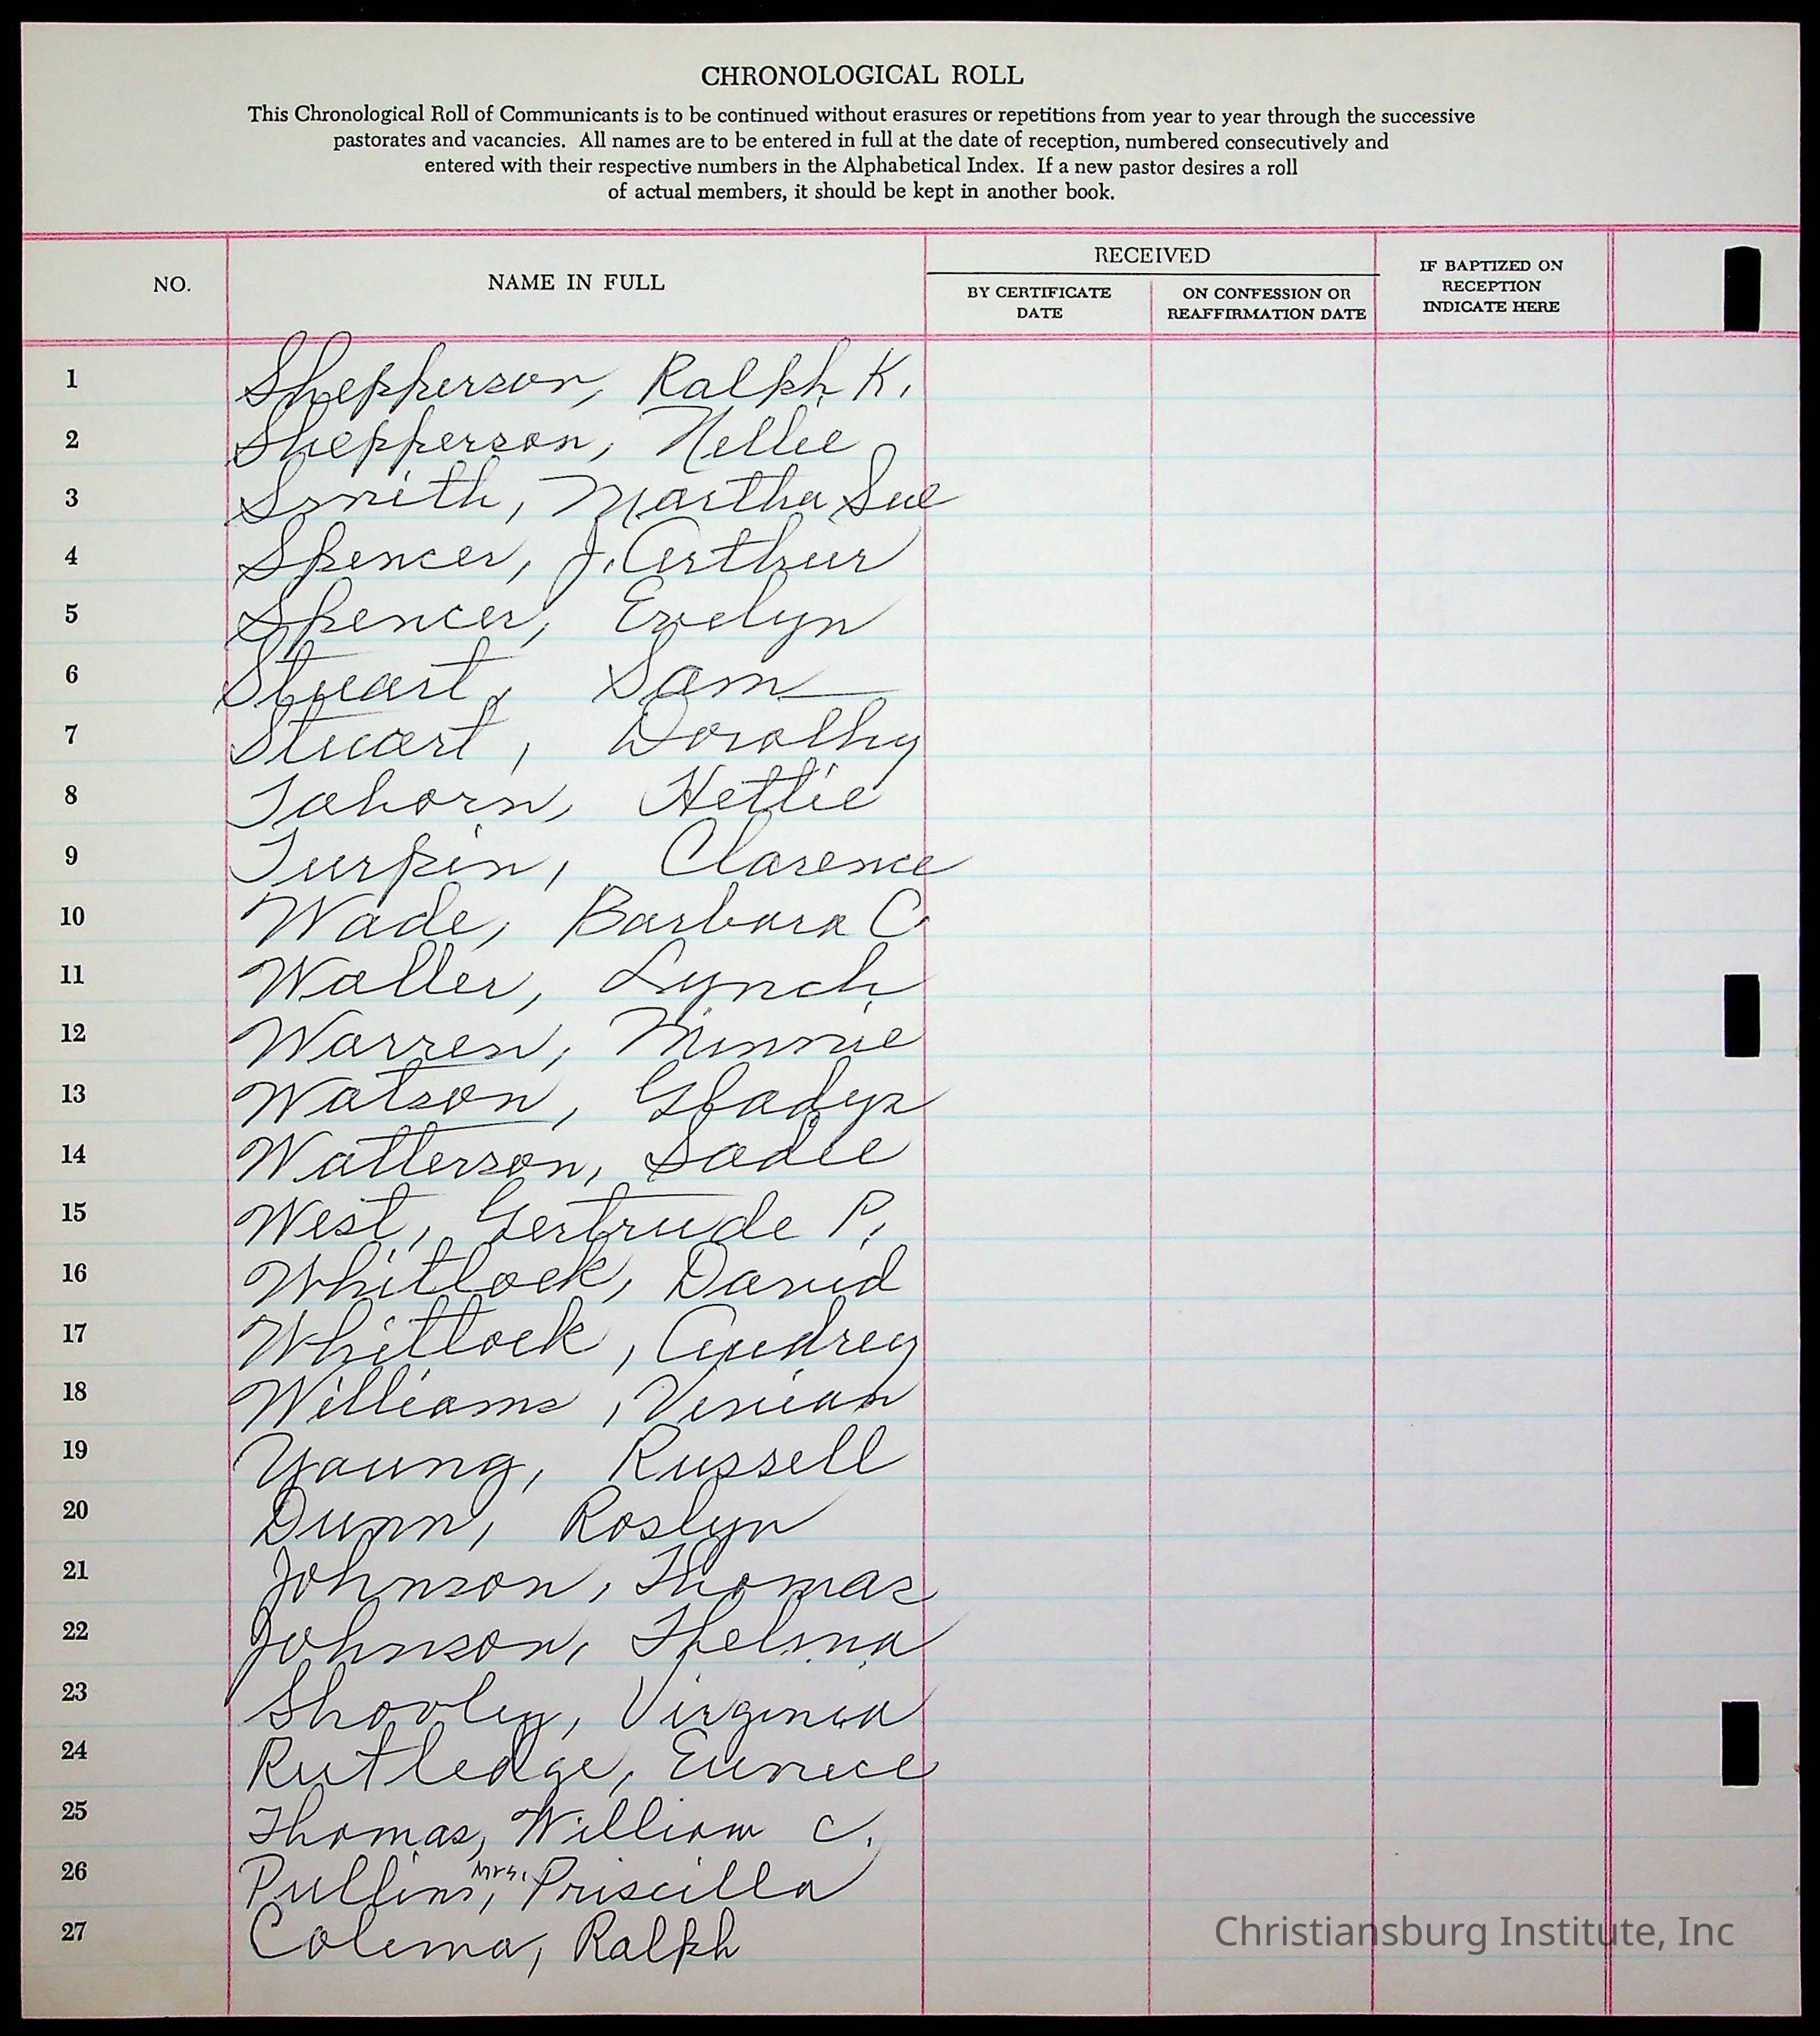 CHRONOLOGICAL ROLL
This Chronological Roll of Communicants is to be continued without erasures or repetitions from year to year through the successive
pastorates and vacancies. All names are to be entered in full at the date of reception, numbered consecutively and
entered with their respective numbers in the Alphabetical Index. If a new pastor desires a roll
of actual members, it should be kept in another book.
NO.
NAME IN FULL
RECEIVED
BY CERTIFICATE
DATE
ON CONFESSION OR
REAFFIRMATION DATE
IF BAPTIZED ON
RECEPTION
INDICATE HERE
1 Shepperson, Ralph K.
2 Shepperson, Nellie
3 Smith, Martha Sue
4 Spencer, J. Arthur
5 Spencer, Evelyn
6 Stuart, Sam
7 Stuart, Dorothy
8 Tahorn, Hettie
9 Turpin, Clarence
10 Wade, Barbara C.
11 Waller, Lynch
12 Warren, Minnie
13 Watson, Gladys
14 Watterson, Sadie
15 West, Gertrude P.
16 Whitlock, David
17 Whitlock, Audrey
18 Williams, Vivian
19 Young, Russell
20 Dunn, Roslyn
21 Johnson, Thomas
22 Johnson, Thelma
23 Virginia
24 Rutledge, Eunice
25 Thomas, William C.
26 Pullins, Mrs. Priscilla
27 Colema, Ralph
Christiansburg Institute, Inc